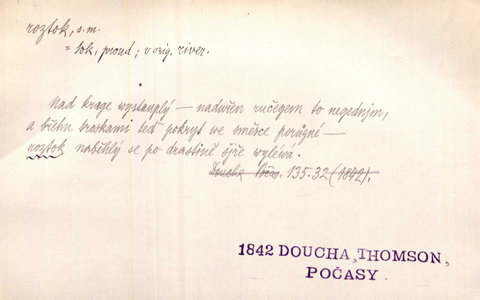 roztok, s.m.
= tok, proud; v orig. river.
Nad krage wystauplý — naduřen ručegem to negedním,
a břehu troskami teď pokryt we směsce porůzné —
roztok naběklý se po drastině šjře wylévá.
Doucha Poč. 135.32 (1842).
1842 DOUCHA, THOMSON,
POČASY.